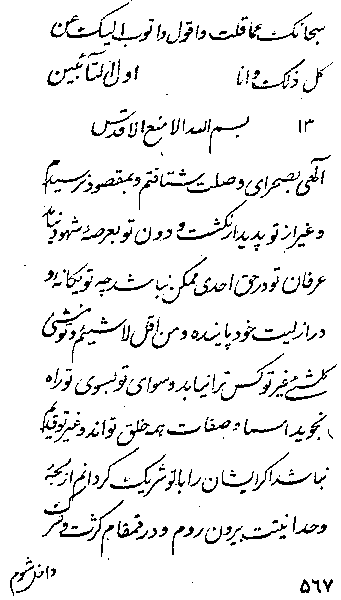 سبحانک عما قلت و اقول و اتوب الیک عن
کل ذلک و انا اول التائبین
۱۳ بسم الله الامنع الاقدس
الهی بصحرای وصلت شتافتم و بمقصود نرسیدم
و غیر از تو پدیدار نگشت و دون تو بعرصهٔ شهود نیاید
عرفان تو در حق احدی ممکن نباشد چه تو یگانه و
در ازلیت خود پاینده و من اقل لا شیئم و تو منشئ
کلشئ غیر تو کس ترا نیابد و سوای تو بسوی تو راه
نجوید اسماء و صفات همه خلق تواند و غیر تو قدیم
نباشد اگر ایشان را با تو شریک گردانم از لجهٔ
وحدانیتت بیرون روم و در قمقام کثرت و شرک
داخل شوم
۵۶۷